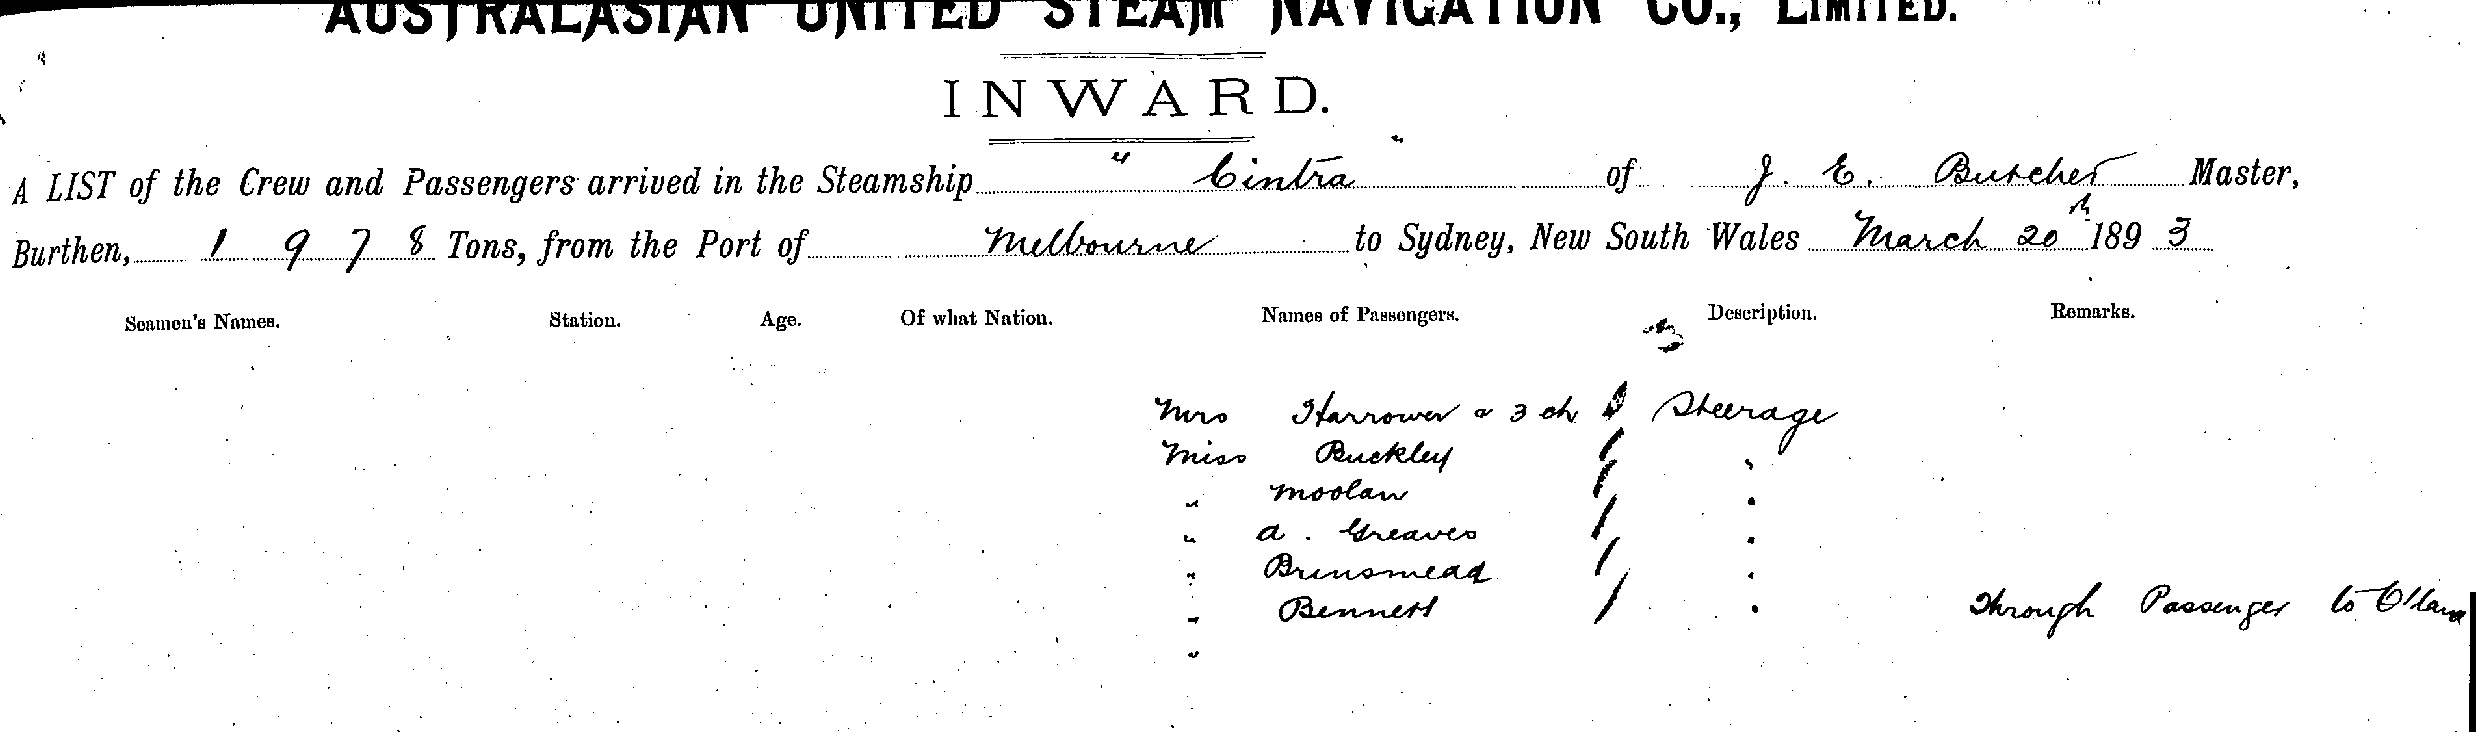 AUSTRALASIAN UNITED STEAM NAVIGATION CO., LIMITED.
INWARD.
A LIST of the Crew and Passengers arrived in the Steamship " Cintra " of J. E. Butcher Master,
Burthen, 1 9 7 8 Tons, from the Port of Melbourne to Sydney, New South Wales March 20th 1893
Seamen's Names. Station. Age. Of what Nation. Names of Passengers. Description. Remarks.
Mrs Harrower & 3 ch Steerage
Miss Buckley "
" Moolan "
" A. Greaves "
" Brinsmead "
" Bennett " Through Passenger to
"